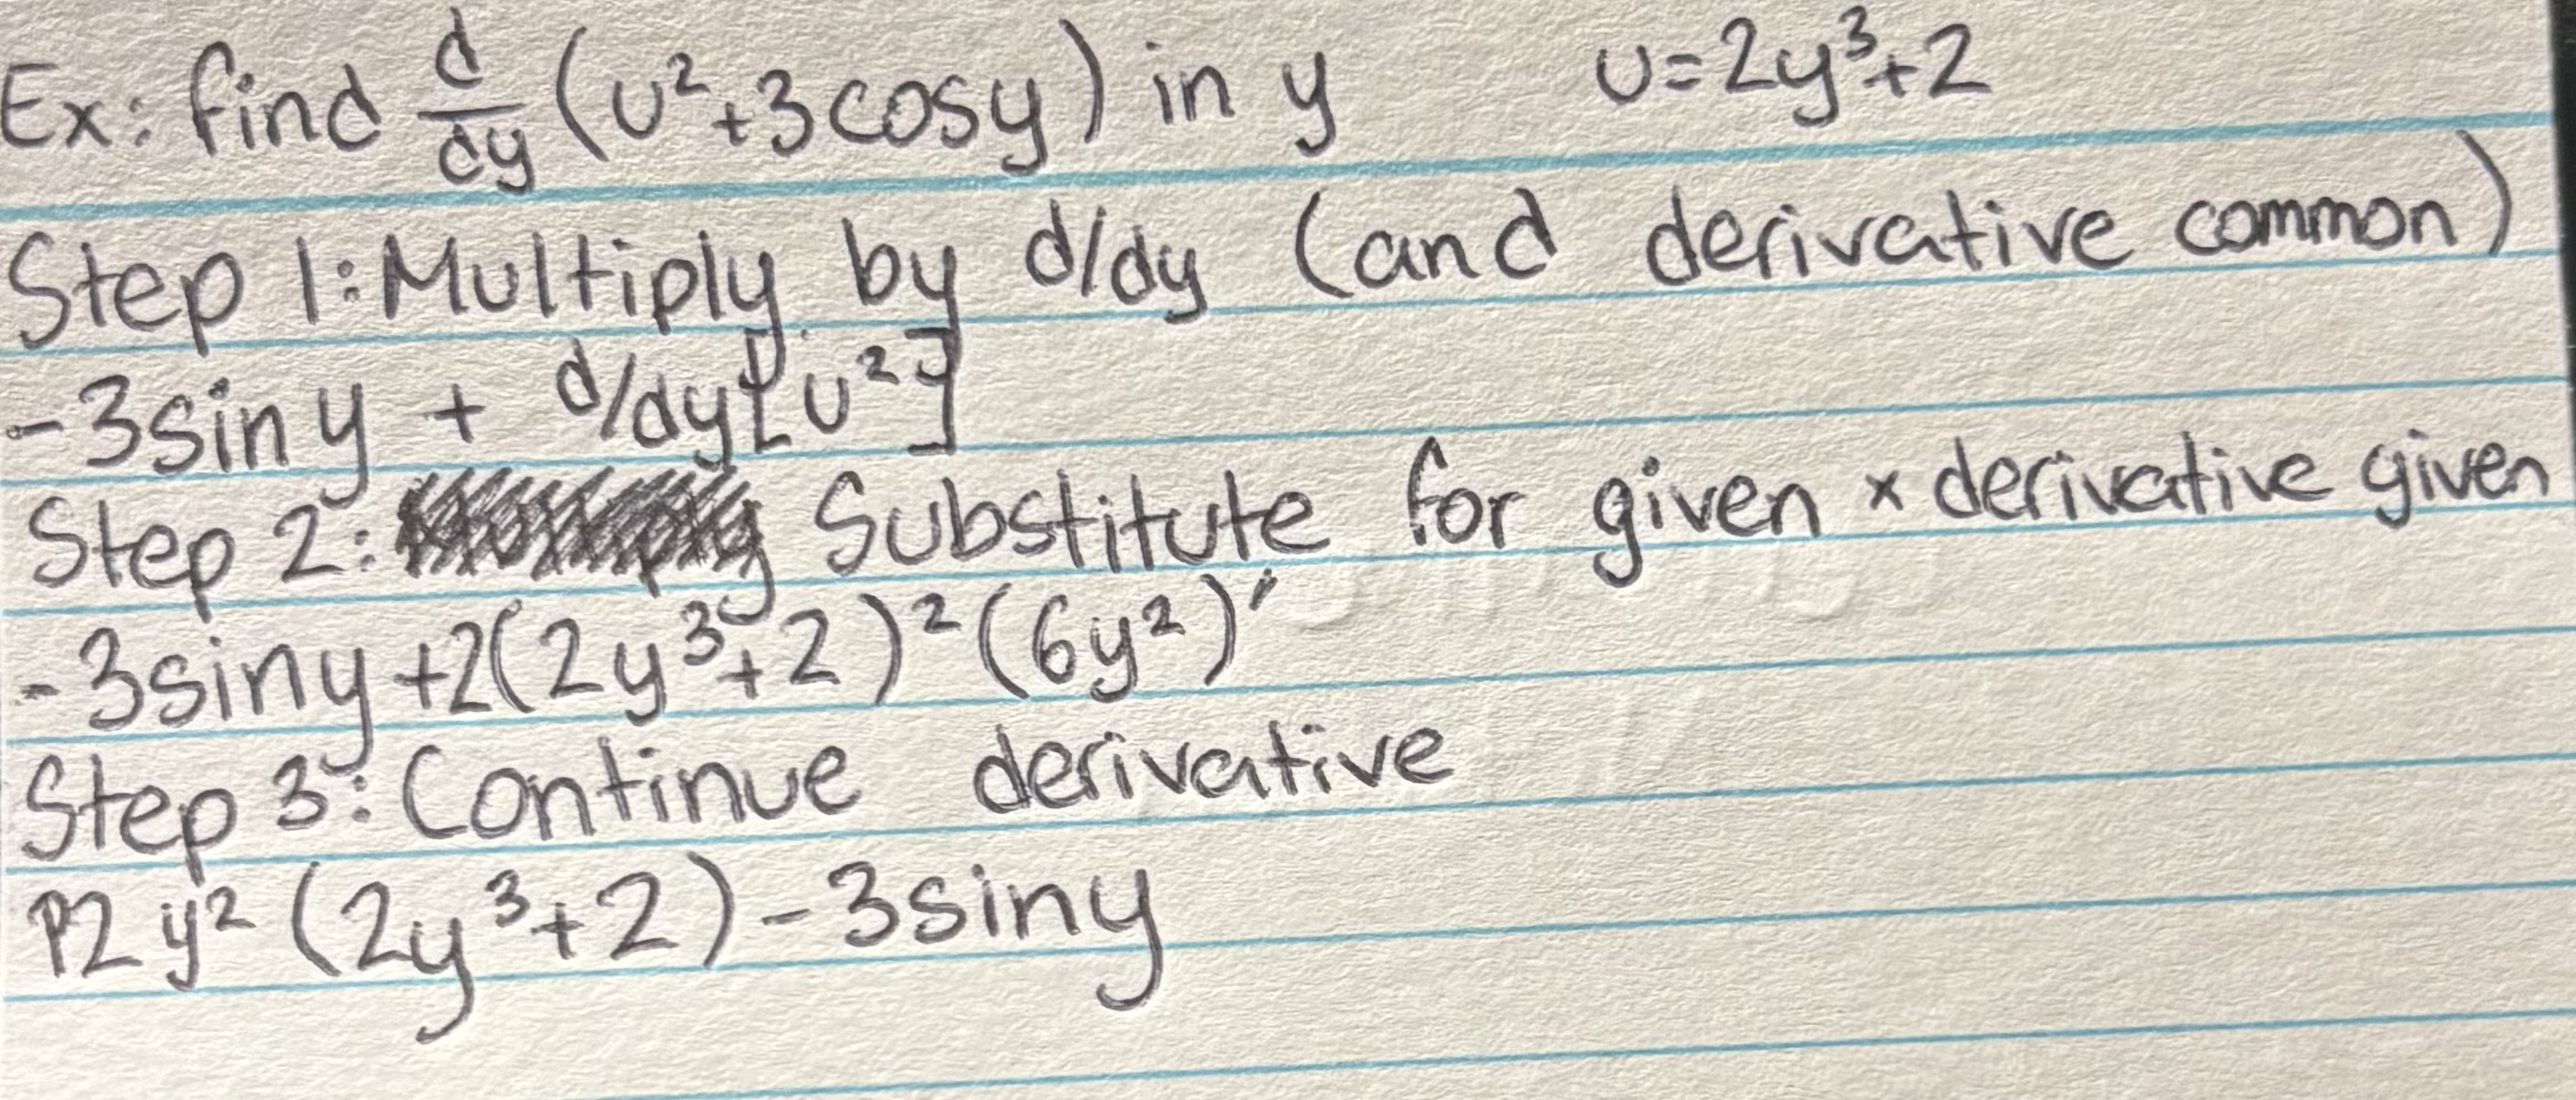 Ex: find d/dy (u²+3cosy) in y u=2y³+2
Step 1: Multiply by d/dy (and derivative common)
-3siny + d/dy[u²]
Step 2: Substitute for given x derivative given
-3siny+2(2y³+2)²(6y²)'
Step 3: Continue derivative
12y²(2y³+2)-3siny